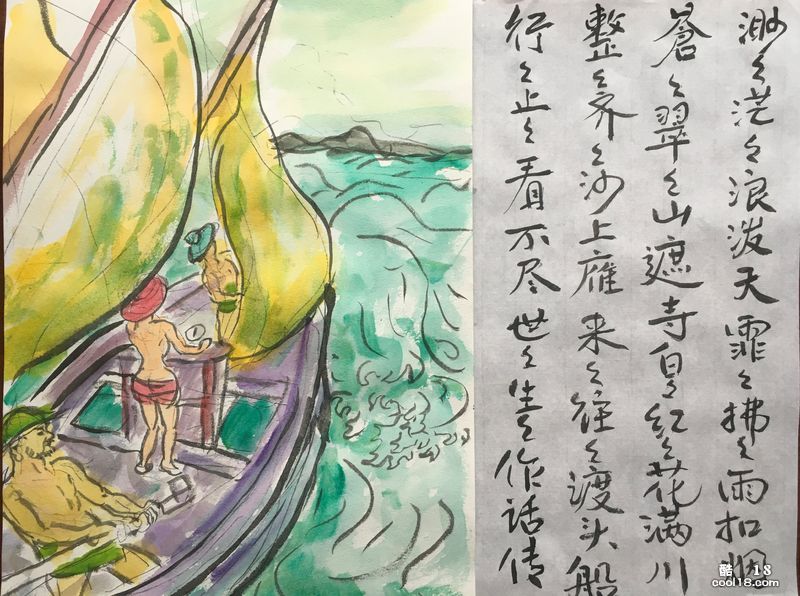 渺々茫々浪泼天霏々拂々雨和烟
蒼々翠々山遮寺白々红々花满川
整々齐々沙上雁来々往々渡头船
行々止々看不尽世々生々作话传
酷 18
cool18.com